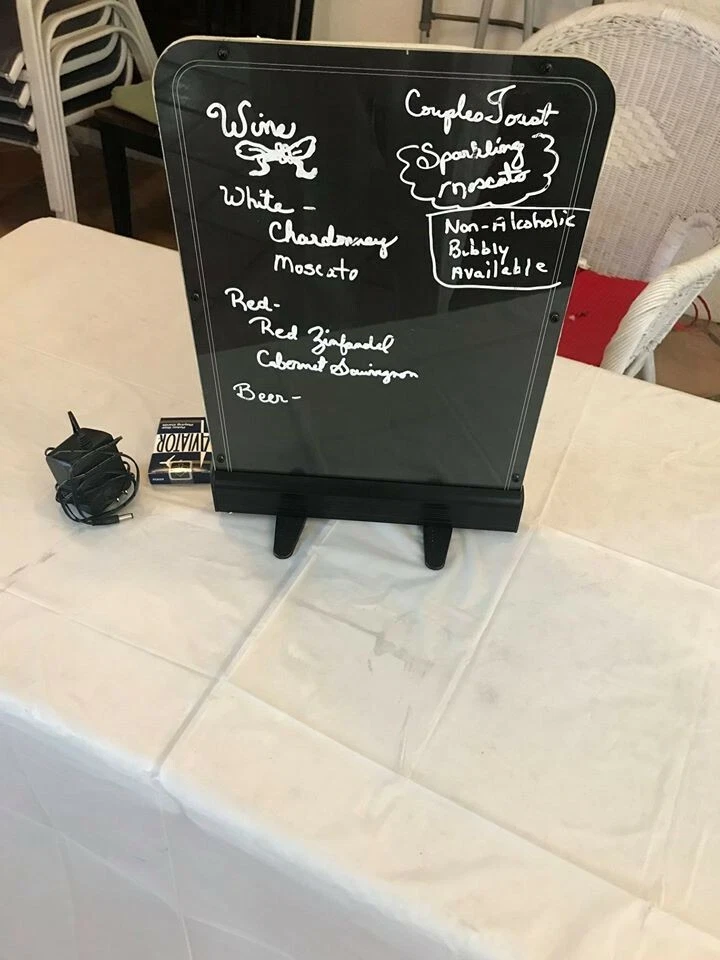 Wine
White -
Chardonnay
Moscato
Red-
Red Zinfandel
Cabernet Sauvingnon
Beer-
Couples Toast
Sparkling
Moscato
Non-Alcoholic
Bubbly
Available
AVIATOR